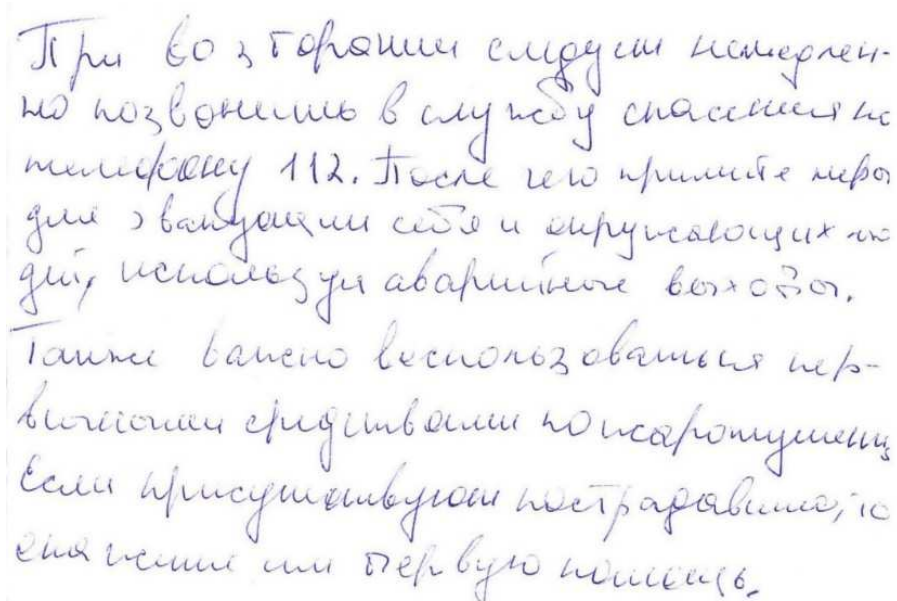 При возгорании следует немедлен-
но позвонить в службу спасения по
телефону 112. После чего примите меры
для эвакуации себя и окружающих лю
дей, используя аварийные выходы.
Также важно воспользоваться пер-
вичными средствами пожаротушения
Если присутствуют пострадавшие, то
окажите им первую помощь.